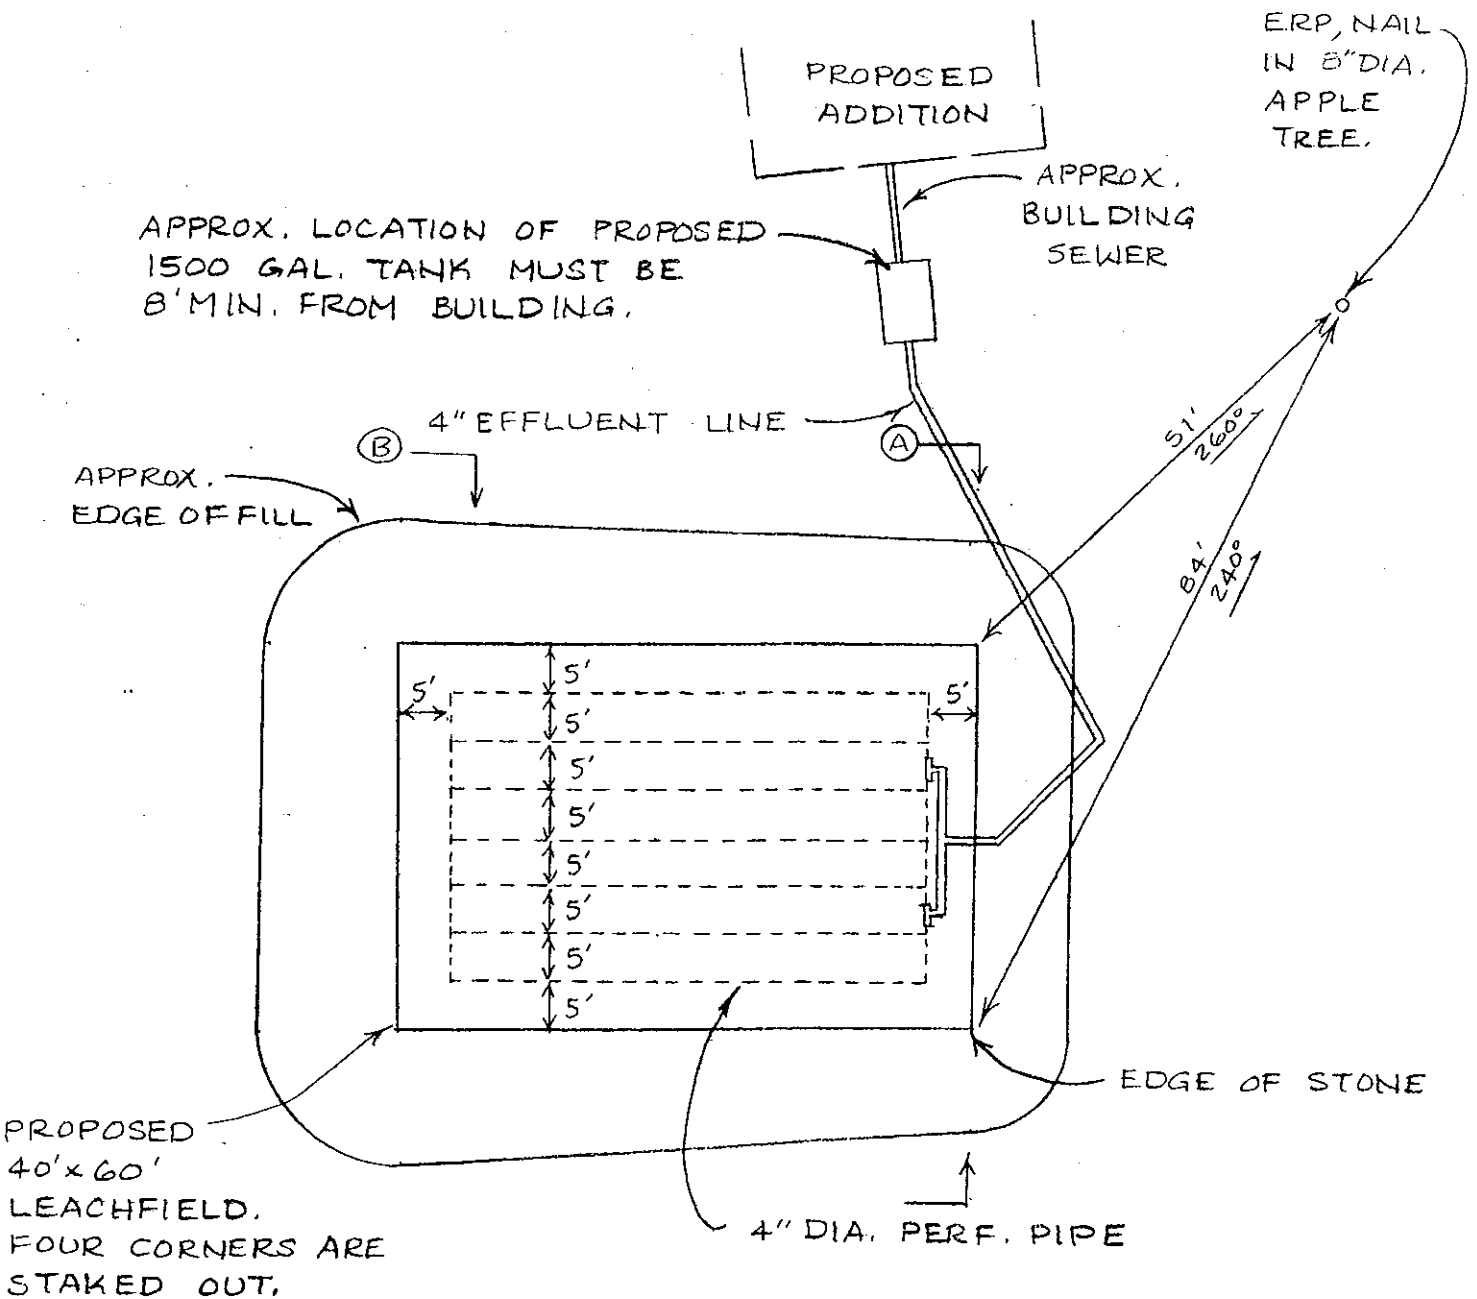 PROPOSED
ADDITION
ERP, NAIL
IN 8" DIA.
APPLE
TREE.
APPROX.
BUILDING
SEWER
APPROX. LOCATION OF PROPOSED
1500 GAL. TANK MUST BE
8' MIN. FROM BUILDING.
4" EFFLUENT LINE
B
A
51'
260°
84'
240°
APPROX.
EDGE OF FILL
5'
5'
5'
5'
5'
5'
5'
5'
5'
5'
EDGE OF STONE
PROPOSED
40' x 60'
LEACHFIELD.
FOUR CORNERS ARE
STAKED OUT.
4" DIA. PERF. PIPE